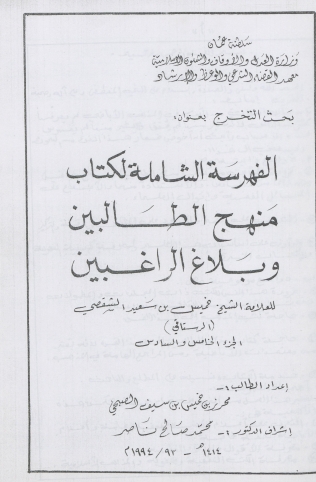 سلطنة عمان
وزارة العدل والأوقاف والشئون الإسلامية
معهد القضاء الشرعي والوعظ والإرشاد
بحث التخرج بعنوان:
الفهرسة الشاملة لكتاب
منهج الطالبين
وبلاغ الراغبين
للعلامة الشيخ خميس بن سعيد الشقصي
(الرستاقي)
الجزء الخامس والسادس
إعداد الطالب :-
محرز بن خميس بن سيف الصبحي
إشراف الدكتور :- محمد صالح ناصر
١٤١٤هـ - ٩٣ / ١٩٩٤م